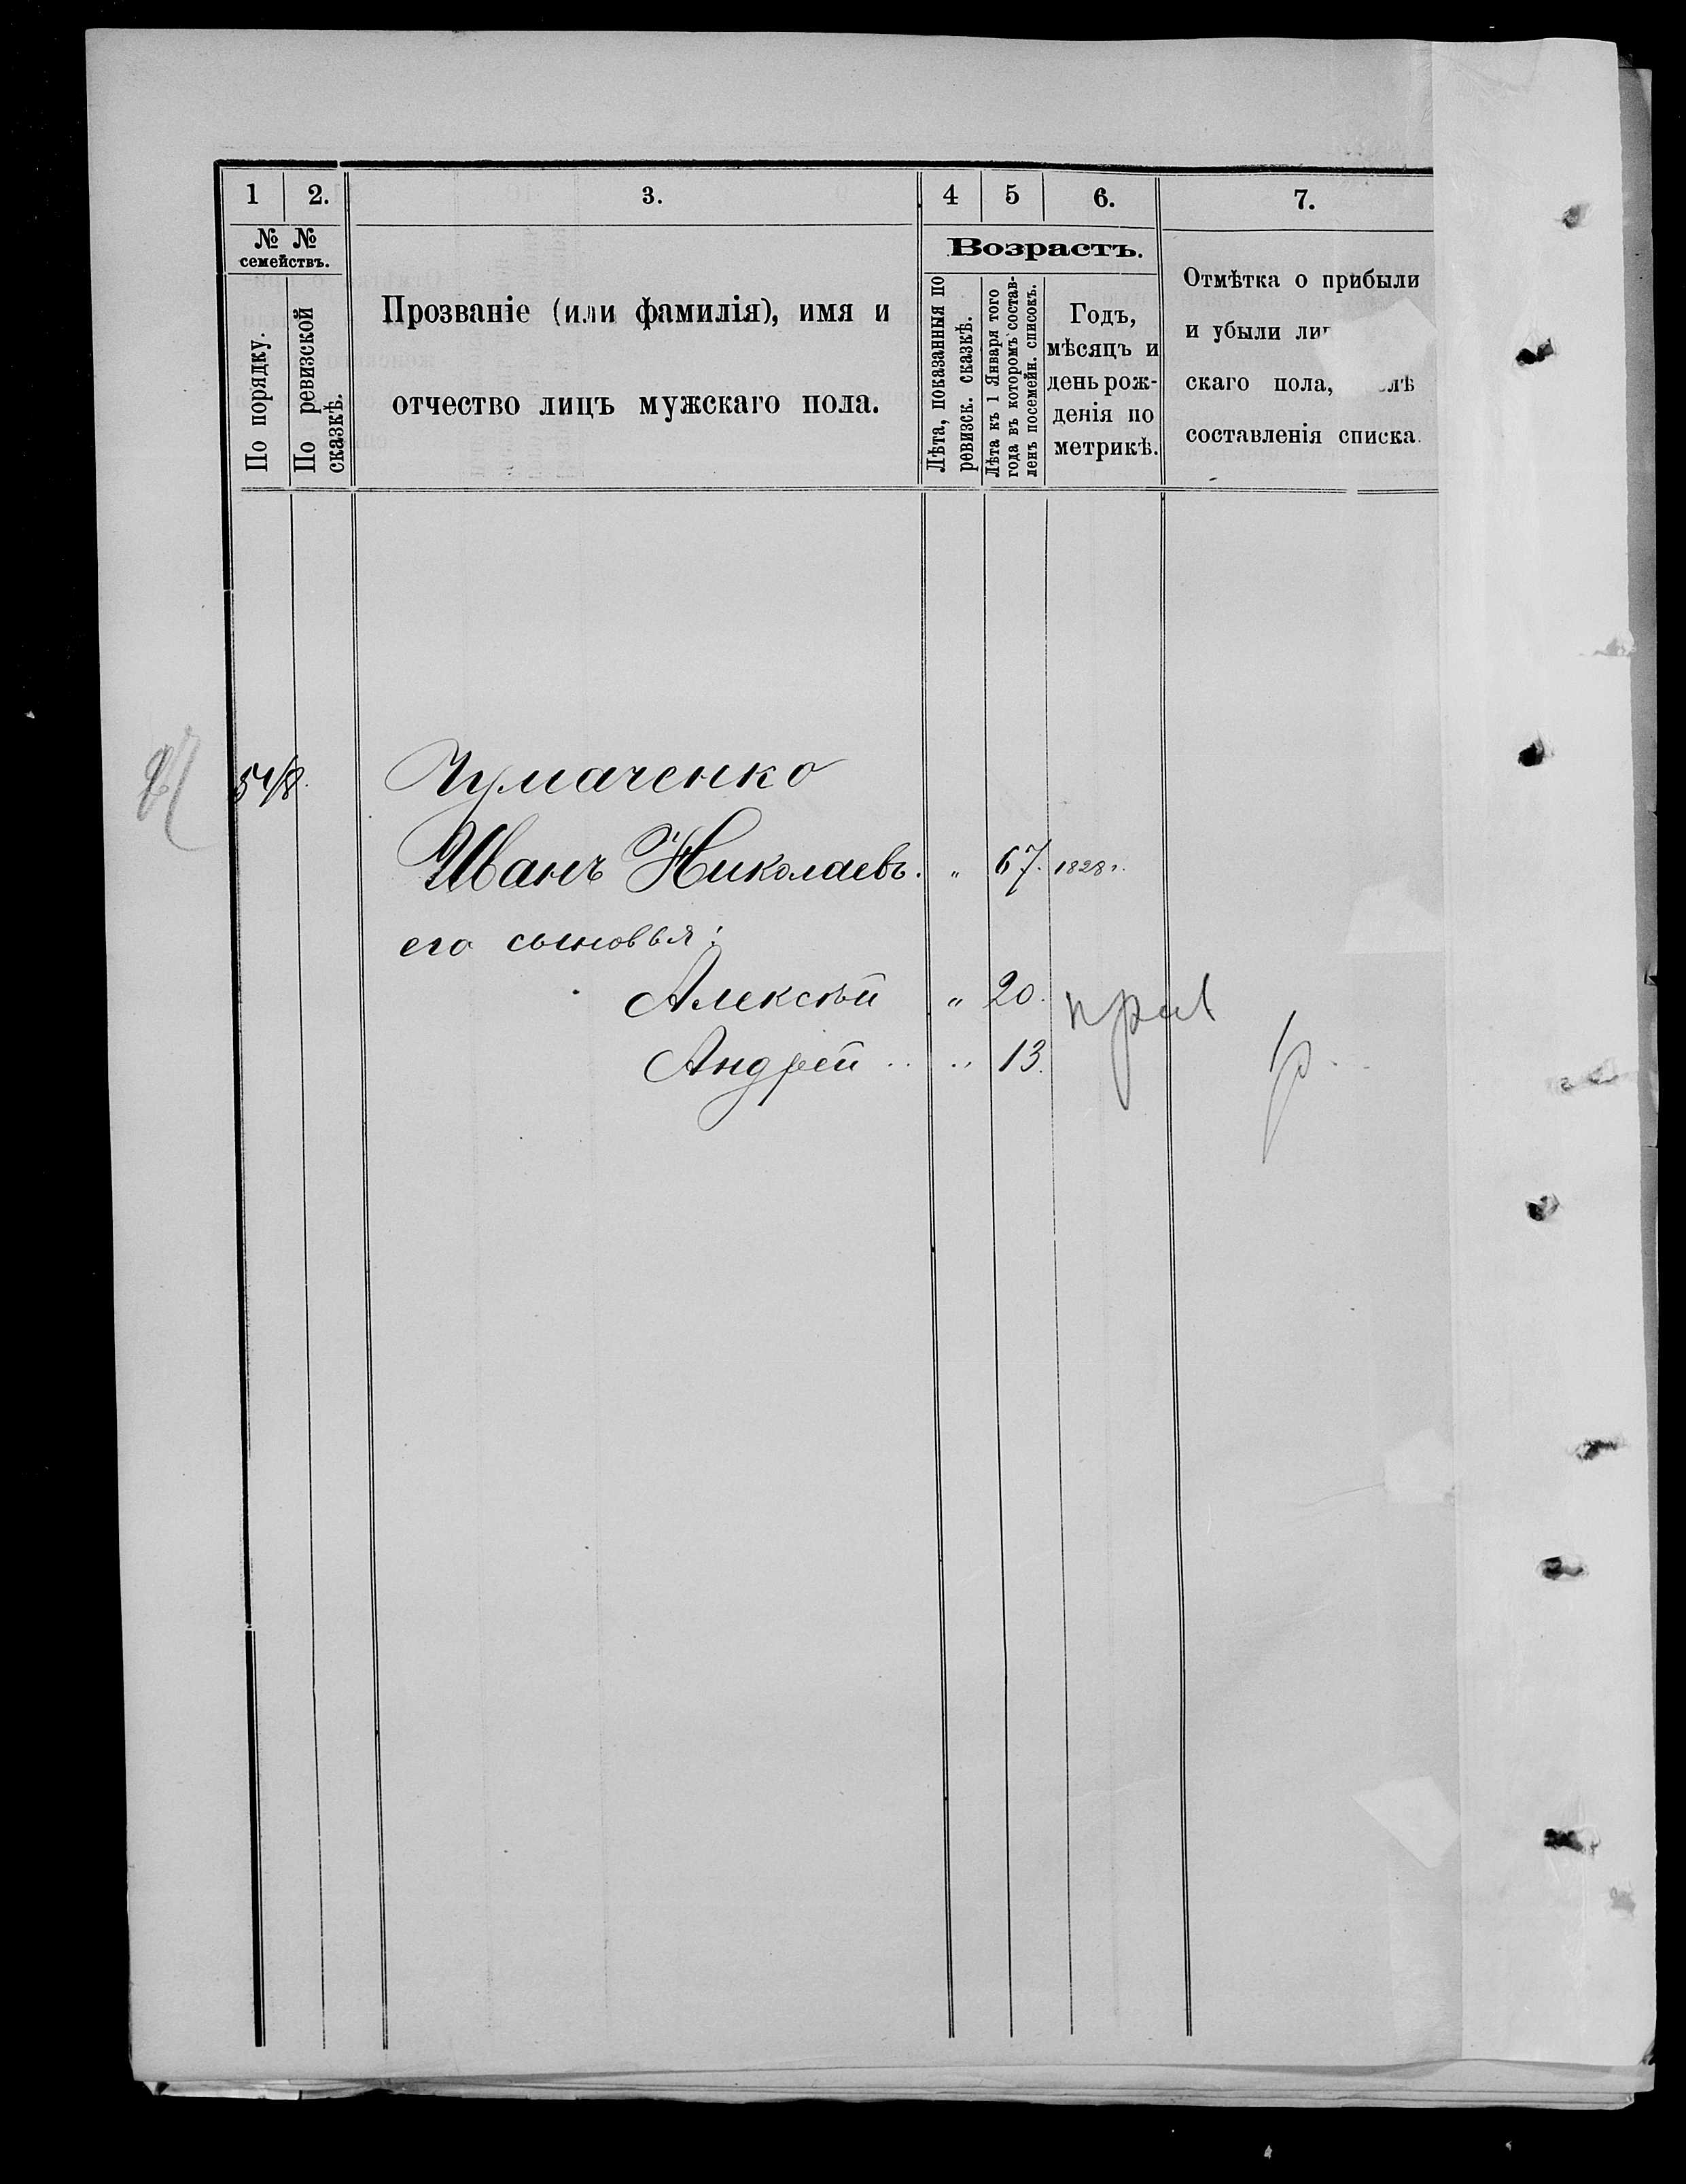 1 2. 3. 4 5 6. 7.
№ № семействъ.
По порядку.
По ревизской сказкѣ.
Прозваніе (или фамилія), имя и
отчество лицъ мужскаго пола.
Возрастъ.
Лѣта, показанныя по
ревизск. сказкѣ.
Лѣта къ 1 Января того
года въ которомъ состав-
ленъ посемейн. списокъ.
Годъ,
мѣсяцъ и
день рож-
денія по
метрикѣ.
Отмѣтка о прибыли
и убыли
скаго пола,
составленія списка.
Чумаченко
Иванъ Николаевъ. " 67. 1828г.
его сыновья:
Алексѣй " 20.
Андрей " 13.